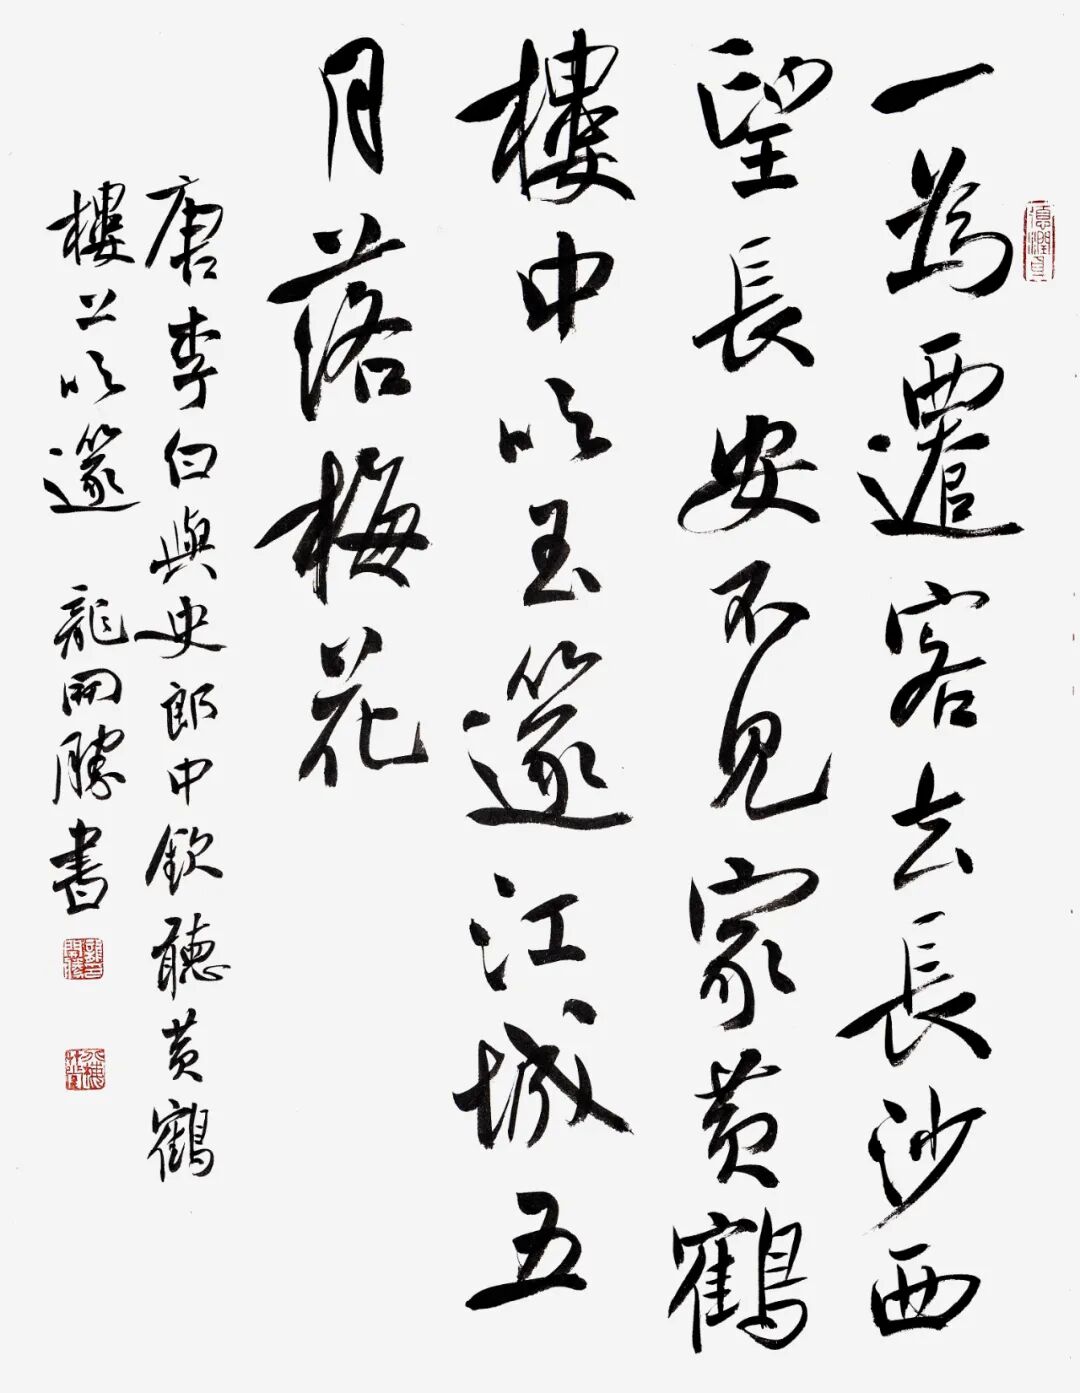 一為遷客去長沙西
望長安不見家黄鶴
樓中吹玉篴江城五
月落梅花
唐李白與史郎中欽聽黄鶴
樓上吹篴 龍開勝書